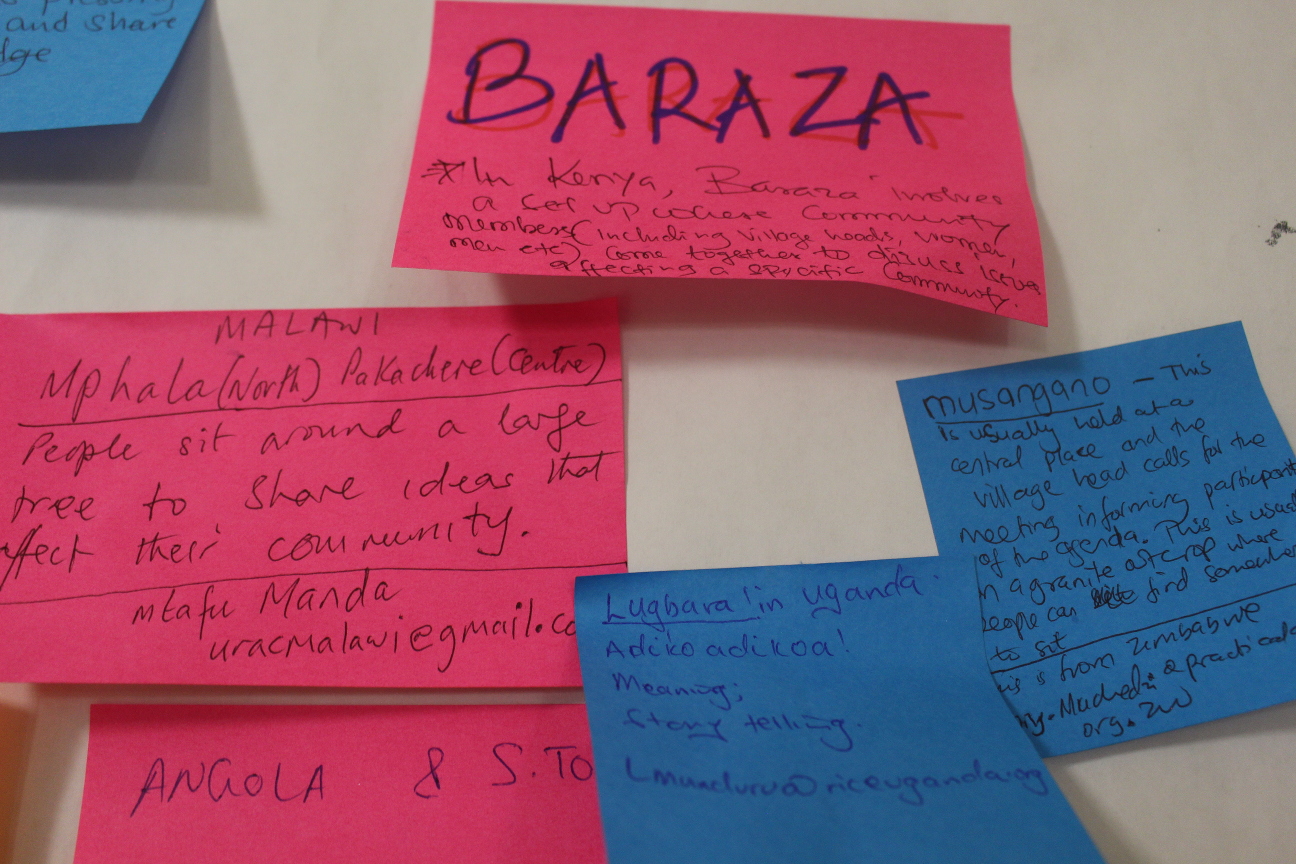 and share
BARAZA
* In Kenya, Baraza involves
a set up where Community
members (including village heads, women,
men etc) come together to discuss issues
affecting a specific Community.
MALAWI
Mphala (North) Pakachere (Centre)
People sit around a large
tree to share ideas that
affect their community.
Mtafu Manda
uracmalawi@gmail.co
ANGOLA & S. TO
Lugbara! in Uganda.
Adiko adikoa!
Meaning;
Story telling.
@riceuganda.org
musangano - This
is usually held at a
central place and the
village head calls for the
meeting informing participants
of the agenda. This is
n a granite outcrop where
people can find somewhere
to sit
is from Zimbabwe
practical
org.zw